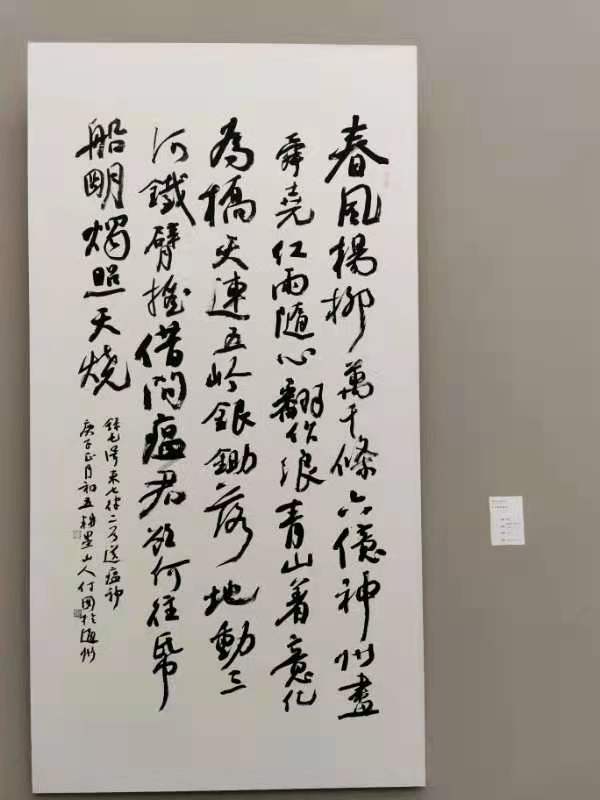 春風楊柳萬千條六億神州盡
舜堯红雨隨心翻作浪青山着意化
為橋天連五岭銀鋤落地動三
河鐵臂搖借問瘟君欲何往帋
船明燭照天燒
錄毛澤東七律二首送瘟神
庚子正月初五耕墨山人付国於通州